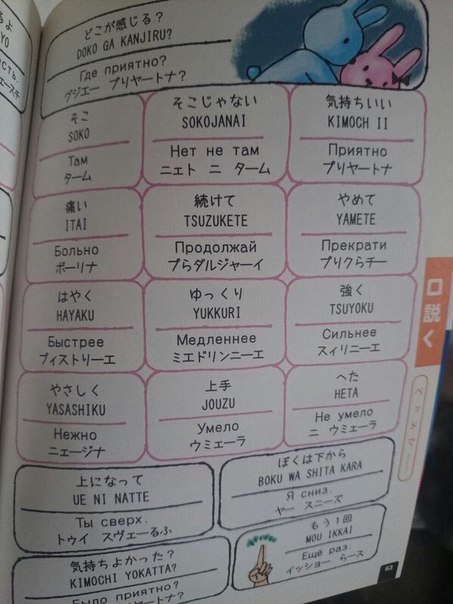 どこが感じる?
DOKO GA KANJIRU?
Где приятно?
グジエー プリヤートナ?
そこ
SOKO
Там
ターム
そこじゃない
SOKOJANAI
Нет не там
ニェト ニ ターム
気持ちいい
KIMOCH II
Приятно
プリヤートナ
痛い
ITAI
Больно
ボーリナ
続けて
TSUZUKETE
Продолжай
プらダルジャーイ
やめて
YAMETE
Прекрати
プリクらチー
はやく
HAYAKU
Быстрее
ブィストリーエ
ゆっくり
YUKKURI
Медленнее
ミエドリンニーエ
強く
TSUYOKU
Сильнее
スィリニーエ
やさしく
YASASHIKU
Нежно
ニェージナ
上手
JOUZU
Умело
ウミェーラ
へた
HETA
Не умело
ニ ウミェーラ
上になって
UE NI NATTE
Ты сверх.
トゥイ スヴェーるふ
ぼくは下から
BOKU WA SHITA KARA
Я сниз.
ヤー スニーズ
気持ちよかった?
KIMOCHI YOKATTA?
Было приятно?
もう1回
MOU IKKAI
Еще раз.
イッショー らース
口説く
63